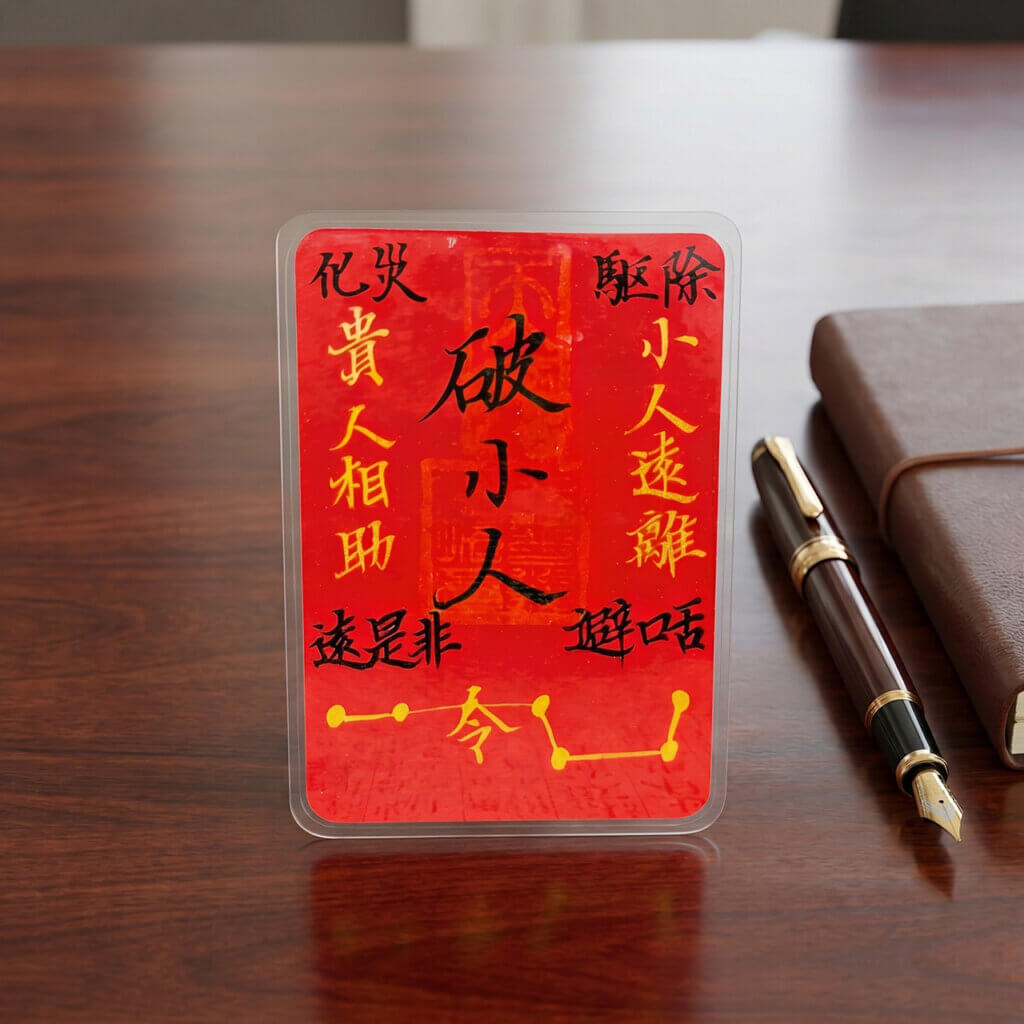 化災
驅除
貴人相助
破小人
小人遠離
遠是非
避口舌
令